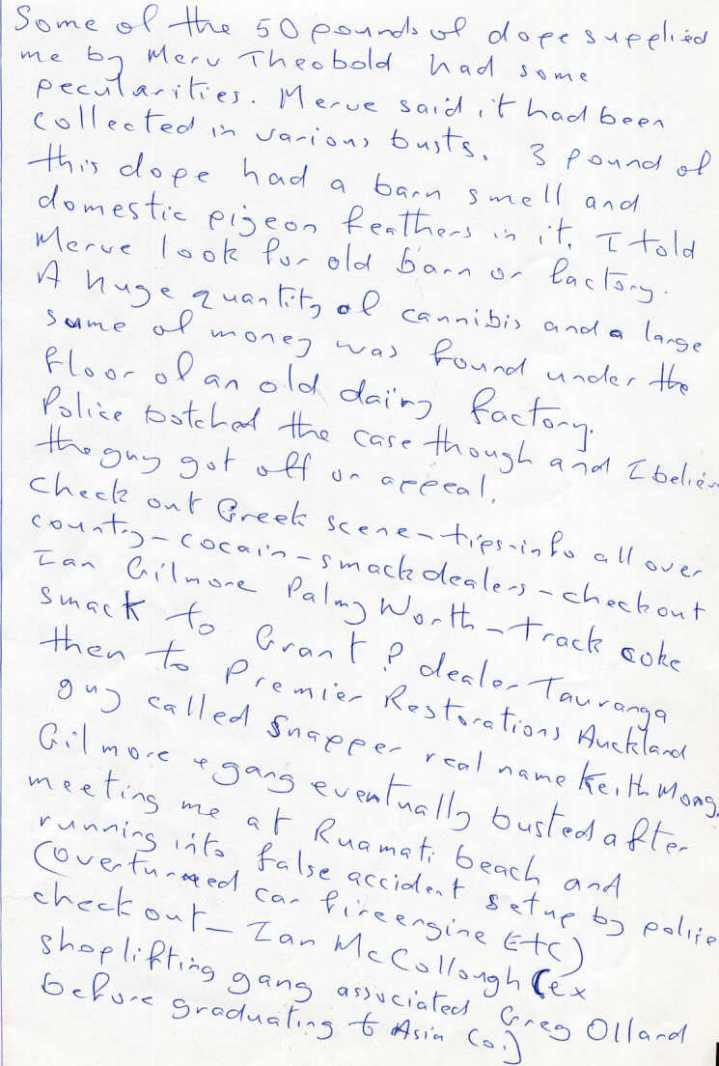 Some of the 50 pounds of dope supplied
me by Merv Theobold had some
pecularities. Merve said it had been
collected in various busts. 3 pound of
this dope had a barn smell and
domestic pigeon feathers in it. I told
Merve look for old barn or factory.
A huge quantity of cannibis and a large
sume of money was found under the
floor of an old dairy factory.
Police botched the case though and I believe
the guy got off on appeal.
Check out Greek scene - tips - info all over
county - cocain - smack dealers - check out
Ian Gilmore Palmy Worth - track coke
smack to Grant ? dealer Tauranga
then to Premier Restorations Auckland
guy called Snapper real name Keith Mong.
Gilmore & gang eventually busted after
meeting me at Ruamati beach and
running into false accident setup by police
(overturned car fireengine Etc)
check out - Ian McCollough (ex
shoplifting gang associated Greg Olland
before graduating to Asia Co.)